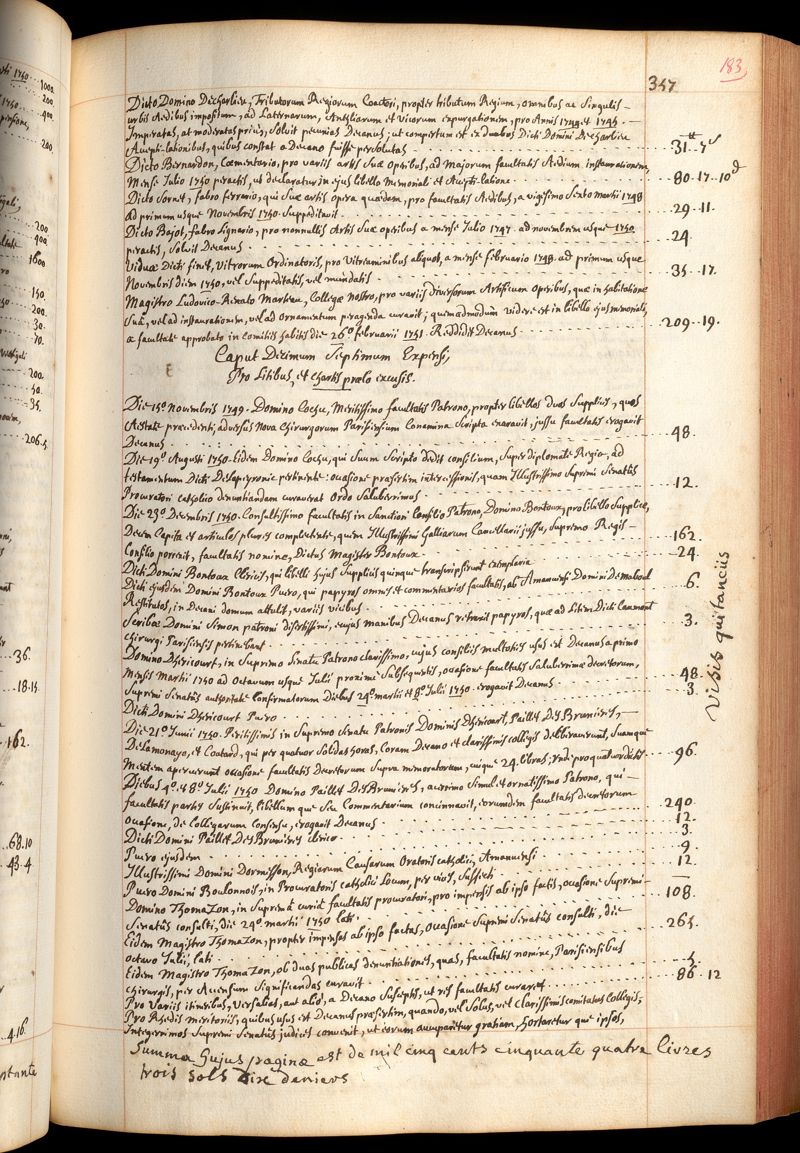 183
347
Dicto Domino Decharlieu, Tributorum Regiorum Coactori, propter tributum Regium, omnibus ac Singulis
urbis Aedibus impositum, ad Laternarum, Antyliarum et Vicorum expurgationem, pro Annis 1748 et 1749.
Imperatas, at moderatas prius, Solvit pecunias Decanus; ut compertum est ex duabus Dicti Domini Decharlieu
Accepti-lationibus, quibus constat a Decano fuisse persolutas 31 tt 7 s
Dicto Bernardon, Comentario, pro variis artis Suae Opibus, ad majorem facultatis Aedium instaurationem,
Mense Julio 1750 peractis, ut declaratur in ejus libello Memoriali et Accepti-latione 80-17-10 d
Dicto Sornet, fabro ferrario, qui Suae artis opera quaedam, pro facultatis Aedibus, a vigesimo Sexto Martii 1748
ad primum usque Novembris 1750 Suppeditavit 29-11.
Dicto Bojot, fabro Lignario, pro nonnullis Artis Suae opibus a mense Julio 1747 ad novembrem usque 1750
peractis, Solvit Decanus 24
Viduae Dicti finet, Vitrorum Ordinatoris, pro Vitreaminibus aliquot, a mense februario 1748 ad primum usque
Novembris diem 1750, vel Suppeditatis, vel mundatis 35-17.
Magistro Ludovico-Renato Marteau, Collegae nostro, pro variis Diversorum Artificum Opibus, quae in habitatione
Sua, vel ad instaurationem, vel ad Ornamentum peragenda curavit; quemadmodum videre est in libello ejus memoriali,
a facultate approbato in Comitiis habitis die 26o februarii 1751. Reddidit Decanus 209-19.
Caput Decimum Septimum Expensi,
Pro Litibus, et chartis praelo excusis.
Die 15o Novembris 1749. Domino Cochu, Meritissimo facultatis Patrono, propter libellos duos Supplices, quos
Aestate praecedenti, adversus Nova Chirurgorum Parisiensium Conamina Scripta exaravit, jussu facultatis erogavit
Decanus 48.
Die 19o Augusti 1750. Eidem Domino Cochu, qui Suum Scripto dedit consilium, Super diplomate Regio, ad
testamentum Dicti De la peyronie pertinente: ocasione praesertim intercessionis, quam Illustrissimo Supremi Senatus
Procuratori catholico denuntiandam curaverat Ordo Saluberrimus 12.
Die 23o Decembris 1750. Consultissimo facultatis in Sanctiori Consilio Patrono, Domino Bontoux, pro libello Supplice,
Decem Capita et articulos plures complectente, quem Illustrissimi Galliarum Cancellarii jussu, Supremo Regis
Consilio porrexit, facultatis nomine, Dictus Magister Bontoux 162.
Dicti Domini Bontoux Clericis, qui libelli hujus Supplicis quinque transcripserunt exemplaria 24.
Dicti ejusdem Domini Bontoux Puero, qui papyros omnes et commentarios facultatis, ab Amanuensi Domini De Maboul
Restitutos, in Decani domum attulit, variis vicibus 6.
Scribae Domini Simon patroni disertissimi, e cujus manibus Decanus retraxit papyros, quae ad Litem Dicti Caumont
chirurgi Parisiensis pertinebant 3.
Domino Dhericourt, in Supremo Senatu Patrono clarissimo, cujus consiliis multoties usus est Decanus a primo
Mensis Martii 1750 ad Octavum usque Julii proxime Subsequentis, ocasione facultatis Saluberrimae decretorum,
Supremi Senatus authoritate Confirmatorum Diebus 24o Martii et 8o Julii 1750 erogavit Decanus 48
Dicti Domini Dhericourt Puero 3.
Die 21o Junii 1750. Peritissimis in Supremo Senatu Patronis Dominis Dhericourt, Paillet Des Brunieres,
De Lamonnoye, et Coatard, qui per quatuor Solidas horas, Coram Decano et clarissimis collegis deliberaverunt, Suamque
Mentem aperuerunt ocasione facultatis Decretorum Supra memoratorum, cuique 24. libras; unde pro quatuor dictis 96.
Diebus 4o et 8o Julii 1750 Domino Paillet Des Brunieres, acerrimo Simul et ornatissimo Patrono, qui
facultatis partes Sustinuit, libellum que Seu Commentarium concinnavit, eorumdem facultatis decretorum
ocasione, de Collegarum Consensu, erogavit Decanus 240.
Dicti Domini Paillet Des Brunieres clerico 12.
Puero ejusdem 3.
Illustrissimi Domini Dormesson, Regiarum Causarum Oratoris catholici, Amanuensi 9.
Puero Domini Boulonnois, in Procuratoris catholici Locum, per vices, Suffecti 12.
Domino Thomazon, in Suprema curia facultatis procuratori, pro impensis ab ipso factis, ocasione Supremi
Senatus consulti, die 24o martii 1750 lati 108.
Eidem Magistro Thomazon, propter impensas ab ipso factas, Ocasione Supremi Senatus Consulti, die
octavo Julii, lati 265.
Eidem Magistro Thomazon, ob duas publicas denuntiationes, quas, facultatis nomine, Parisiensibus
chirurgis, per Accensum Significandas curavit 5.
Pro Variis itineribus, Versalias, aut alio, a Decano Susceptis, ut res facultatis curaret 86 12
Pro Rhedis meritoriis, quibus usus est Decanus praesertim, quando, vel Solus, vel clarissimis comitatus Collegis,
Integerrimos Supremi Senatus judices convenit, ut eorum aucuparetur gratiam, hortaretur que ipsos,
Summa hujus paginae est de mil cinq cents cinquante quatre livres
trois sols dix deniers
Visis quitanciis